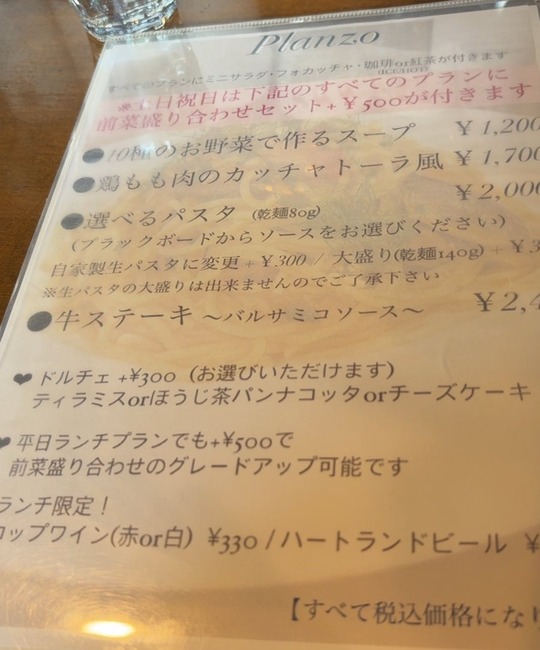 Planzo
すべてのプランにミニサラダ・フォカッチャ・珈琲or紅茶が付きます
(ICE/HOT)
※土日祝日は下記のすべてのプランに
前菜盛り合わせセット+¥500が付きます
●10種のお野菜で作るスープ ¥1,200
●鶏もも肉のカッチャトーラ風 ¥1,700
¥2,000
●選べるパスタ (乾麺80g)
(ブラックボードからソースをお選びください)
自家製生パスタに変更+¥300 / 大盛り(乾麺140g) + ¥3
※生パスタの大盛りは出来ませんのでご了承下さい
●牛ステーキ ～バルサミコソース～ ¥2,4
❤ドルチェ +¥300 (お選びいただけます)
ティラミスorほうじ茶パンナコッタorチーズケーキ
❤平日ランチプランでも+¥500で
前菜盛り合わせのグレードアップ可能です
ランチ限定！
コップワイン(赤or白) ¥330 / ハートランドビール ¥
【すべて税込価格になり